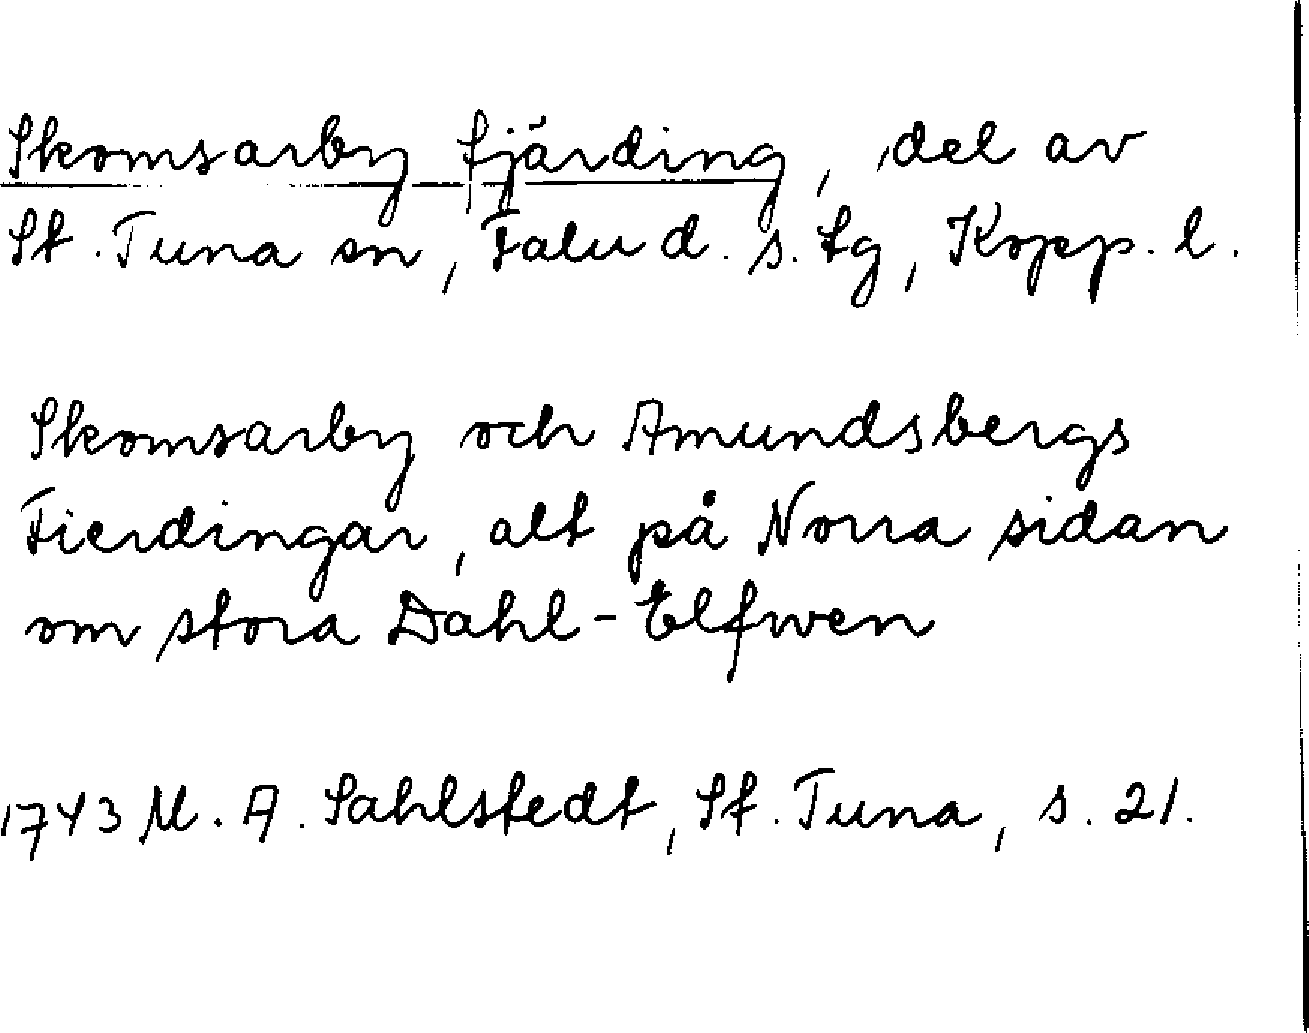 Skomsarby fjärding, del av
St. Tuna sn, Falu d. s. tg, Kopp. l.
Skomsarby och Amundsbergs
Fierdingar, alt på Norra sidan
om stora Dahl-Elfwen
1743 M. A. Sahlstedt, St. Tuna, s. 21.